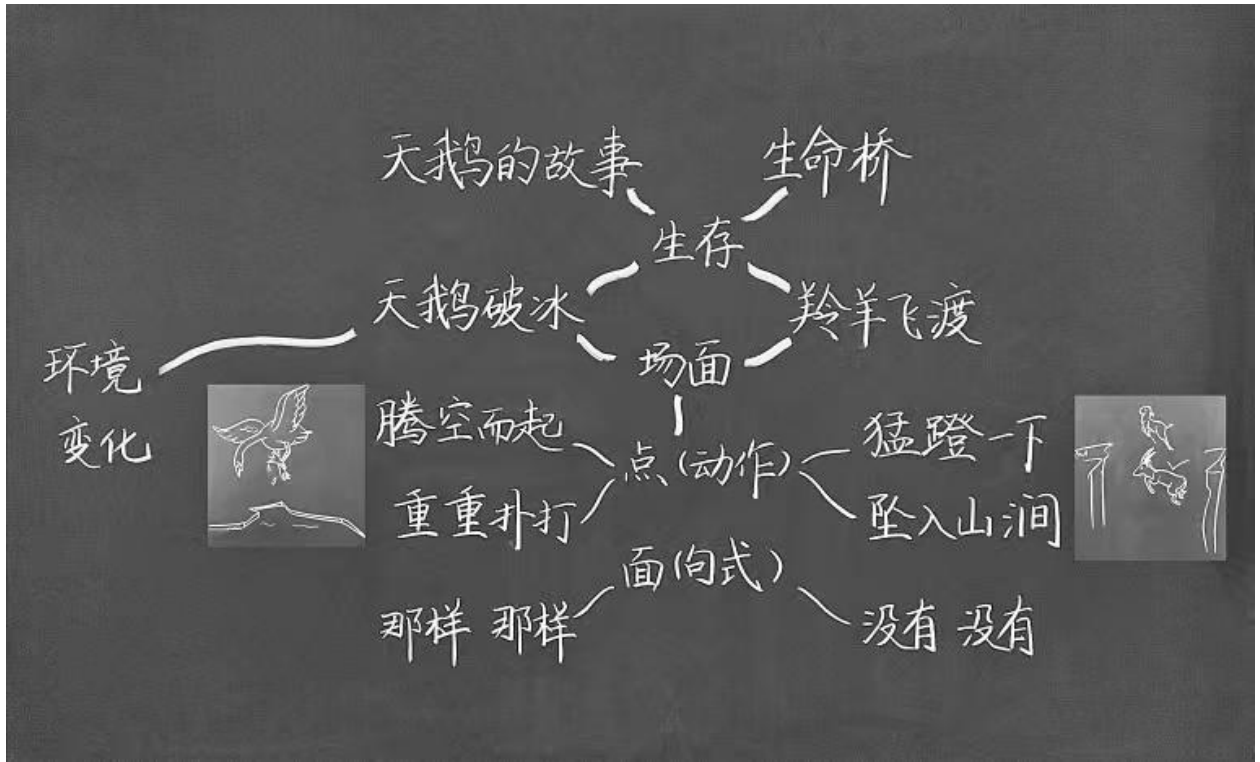 天鹅的故事 生命桥
生存
天鹅破冰 羚羊飞渡
环境
变化
场面
腾空而起 猛蹬一下
点(动作)
重重扑打 坠入山涧
面(句式)
那样 那样 没有 没有